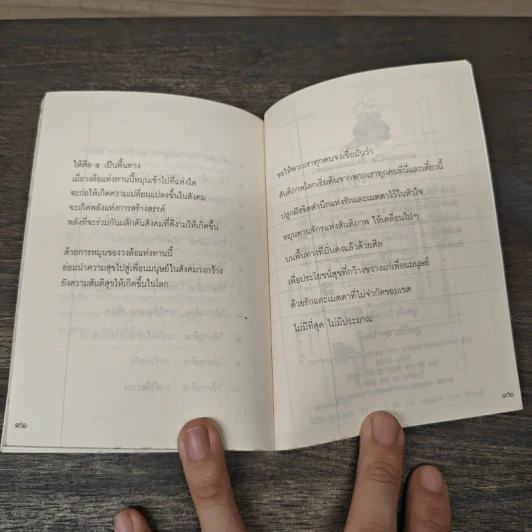 ให้ศีล ๕ เป็นพื้นทาง
เมื่อวงล้อแห่งทานนี้หมุนเข้าไปที่แห่งใด
จะก่อให้เกิดความเปลี่ยนแปลงขึ้นในสังคม
จะเกิดพลังแห่งการสร้างสรรค์
พลังที่จะร่วมกันผลักดันสังคมที่ดีงามให้เกิดขึ้น
ด้วยการหมุนของวงล้อแห่งทานนี้
ย่อมนำความสุขไปสู่เพื่อนมนุษย์ในสังคมวงกว้าง
ยังความสันติสุขให้เกิดขึ้นในโลก
๙๑
ขอให้พวกเราทุกคนจงเชื่อมั่นว่า
สันติภาพโลกเริ่มต้นจากพวกเราทุกคนที่นี่และเดี๋ยวนี้
ปลูกฝังจิตสำนึกแห่งรักและเมตตาไว้ในหัวใจ
หมุนทานจักรแห่งสันติภาพ ให้เคลื่อนไปๆ
บนพื้นทางที่มั่นคงแล้วด้วยศีล
เพื่อประโยชน์สุขที่กว้างขวางแก่เพื่อนมนุษย์
ด้วยรักและเมตตาที่ไม่จำกัดขอบเขต
ไม่มีที่สุด ไม่มีประมาณ